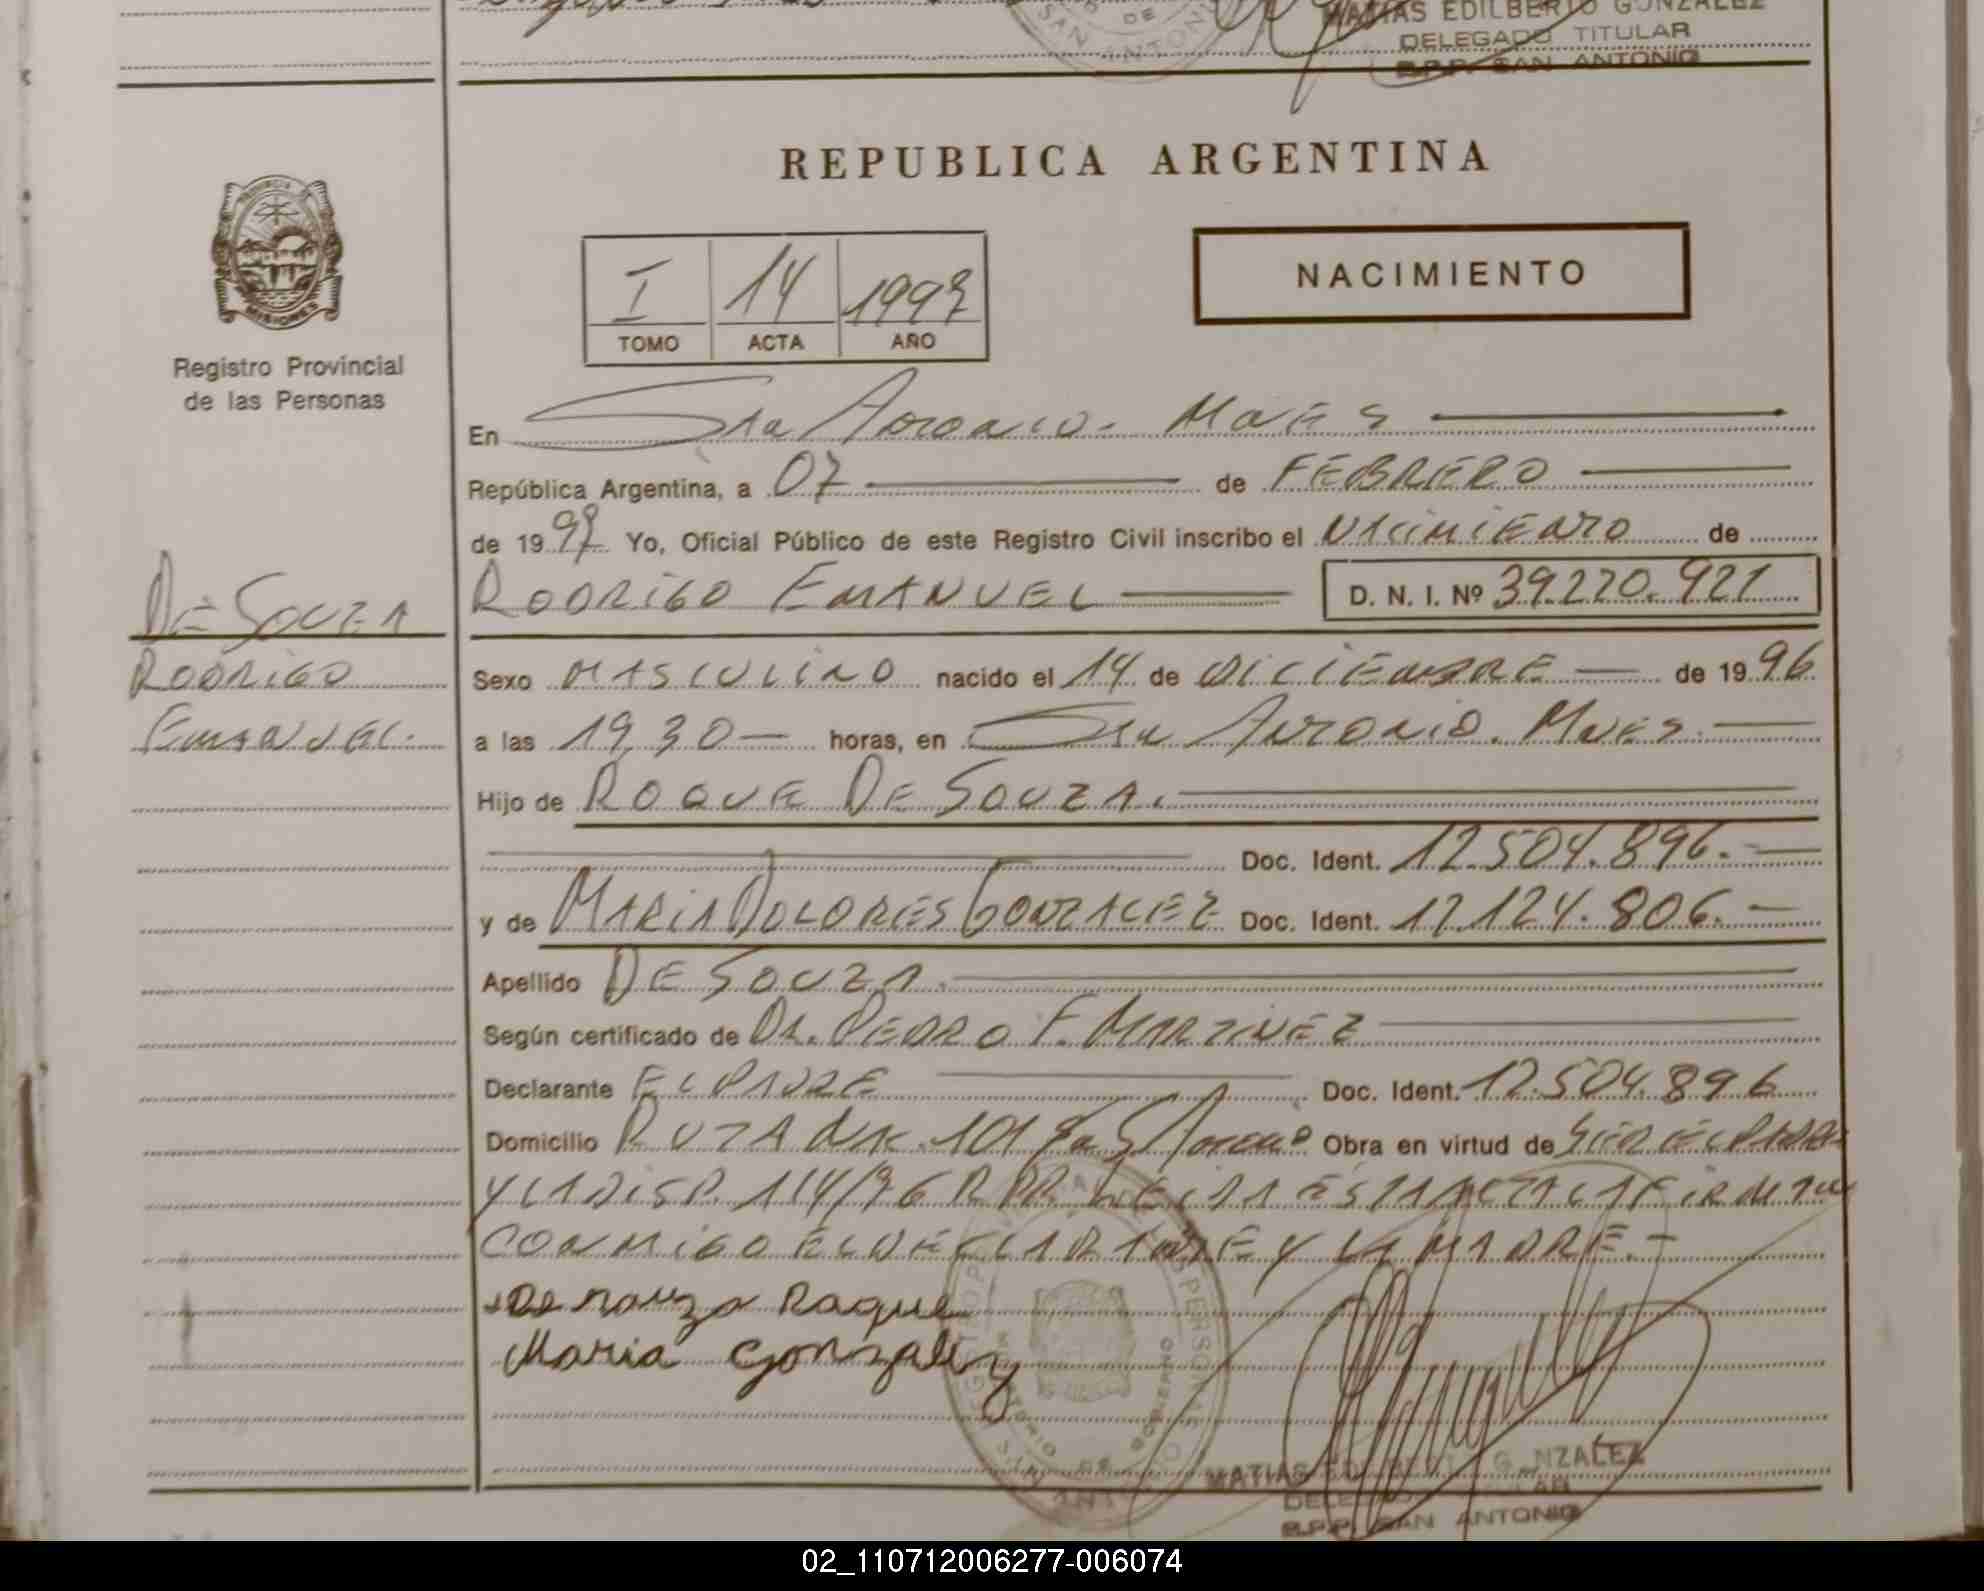 MATIAS EDILBERTO GONZALEZ
DELEGADO TITULAR
R.P.P. SAN ANTONIO
SAN ANTONIO
DE
REPUBLICA ARGENTINA
PROVINCIA DE
MISIONES
Registro Provincial
de las Personas
I 14 1997
TOMO ACTA AÑO
NACIMIENTO
En San Antonio. Mnes
República Argentina, a 07 de FEBRERO
de 1997 Yo, Oficial Público de este Registro Civil inscribo el NACIMIENTO de
RODRIGO EMANUEL D. N. I. Nº 39.220.921
DE SOUZA
RODRIGO
EMANUEL.
Sexo MASCULINO nacido el 14 de DICIEMBRE de 1996
a las 19,30 horas, en San Antonio. Mnes
Hijo de ROQUE DE SOUZA.
Doc. Ident. 12.504.896.
y de MARIA DOLORES GONZALEZ Doc. Ident. 17.124.806.
Apellido DE SOUZA.
Según certificado de DR. PEDRO F. MARTINEZ
Declarante EL PADRE Doc. Ident. 12.504.896
Domicilio RUTA NAC. 101 S/Antonio Obra en virtud de SER EL PADRE
Y LA DISP. 114/96 R.P.P. LEIDA ESTA ACTA LA FIRMAN
CONMIGO EL DECLARANTE Y LA MADRE.-
De Souza Raque
Maria Gonzalez
MATIAS GONZALEZ
R.P.P. SAN ANTONIO
02_110712006277-006074